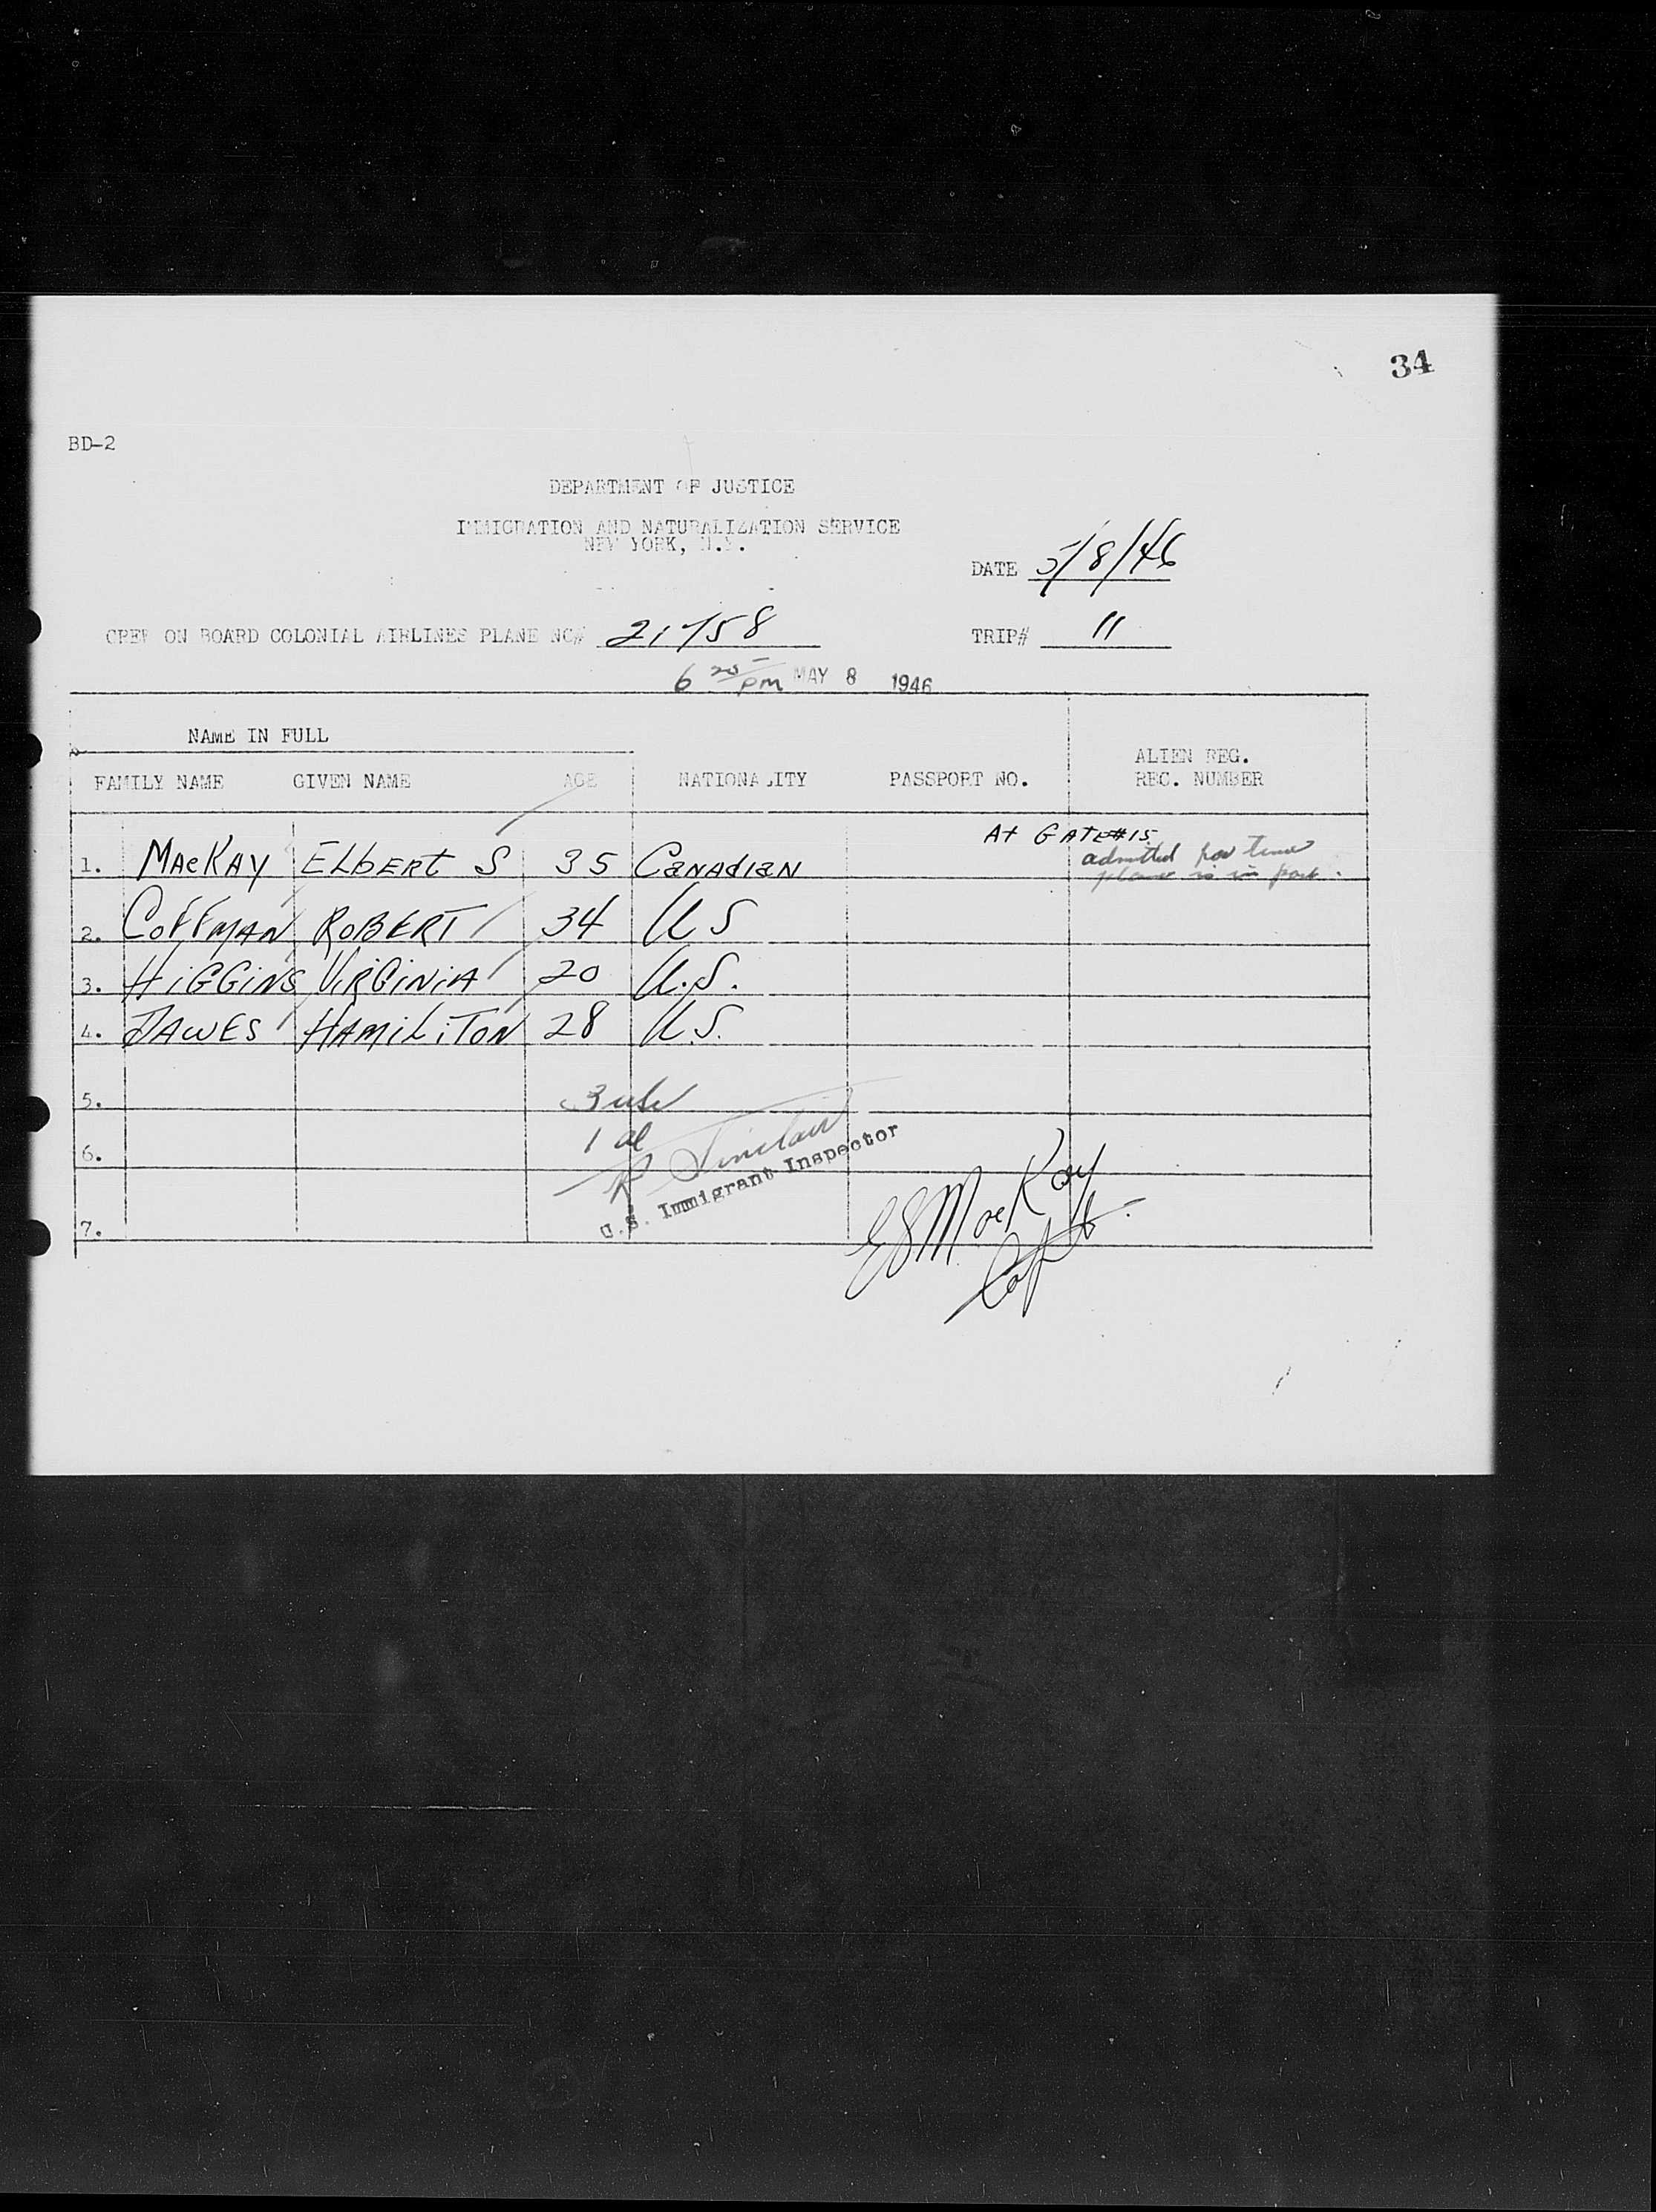 34
BD-2
DEPARTMENT OF JUSTICE
IMMIGRATION AND NATURALIZATION SERVICE
NEW YORK, N.Y.
DATE 5/8/46
CREW ON BOARD COLONIAL AIRLINES PLANE NC# 21758
TRIP# 11
6 25 pm MAY 8 1946
NAME IN FULL
FAMILY NAME GIVEN NAME AGE NATIONALITY PASSPORT NO. ALIEN REG. REC. NUMBER
At GATE#15
1. MacKAY ELbERt S 35 CaNAdIaN admitted for time
plane is in port.
2. COFFMAN ROBERT 34 US
3. HiGGiNS ViRGiNiA 20 U.S.
4. DAWES HAMiLiTON 28 U.S.
5. 3 usc
6. 1 al
R Sinclair
U.S. Immigrant Inspector
7.
ES MacKay
Capt.